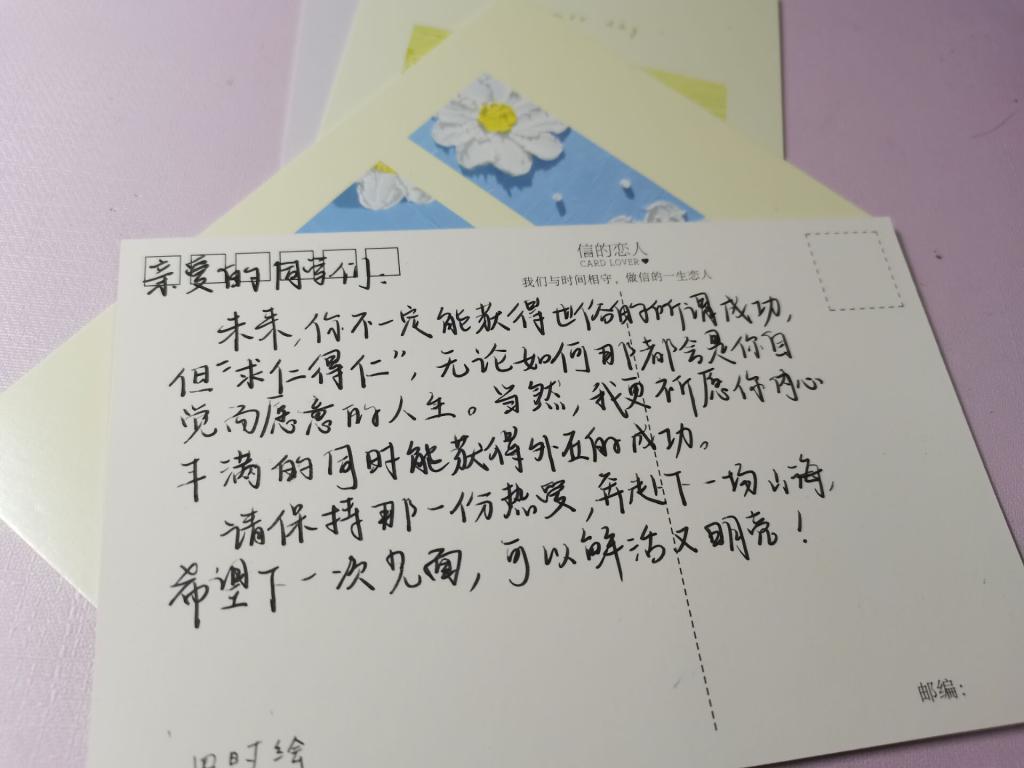 信的恋人
CARD LOVER
我们与时间相守，做信的一生恋人
亲爱的同学们：
未来，你不一定能获得世俗的所谓成功，
但“求仁得仁”，无论如何那都会是你自
觉而愿意的人生。当然，我更祈愿你内心
丰满的同时能获得外在的成功。
请保持那一份热爱，奔赴下一场山海，
希望下一次见面，可以鲜活又明亮！
邮编：
时绘